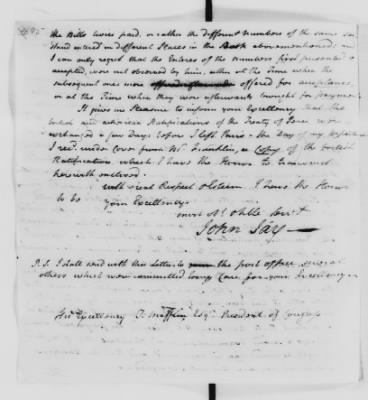 the Bills were paid, or rather the different Numbers of the same sd
stand entered in different Places in the Book abovementioned; and
I can only regret that the Entries of the Numbers first presented &
accepted, were not observed by him, either at the Time when the
subsequent ones were offered for acceptance
or at the Time when they were afterwards brought for payment.
It gives me Pleasure to inform your Excellency that the
british and american Ratifications of the Treaty of Peace were
exchanged a few Days before I left Paris. The Day of my Departure
I recd. under cover from Mr. Franklin, a Copy of the british
Ratification, which I have the Honor to transmit
herewith enclosed.
with real Respect & Esteem I have the Honor
to be your Excellency's
most obt. & hble Servt
John Jay
P.S. I shall send with this Letter to the post office several
others which were committed to my Care for your Excellency
His Excellency T. Mifflin Esqr. President of Congress